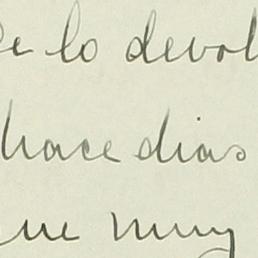 se lo devol
hace dias
me muy